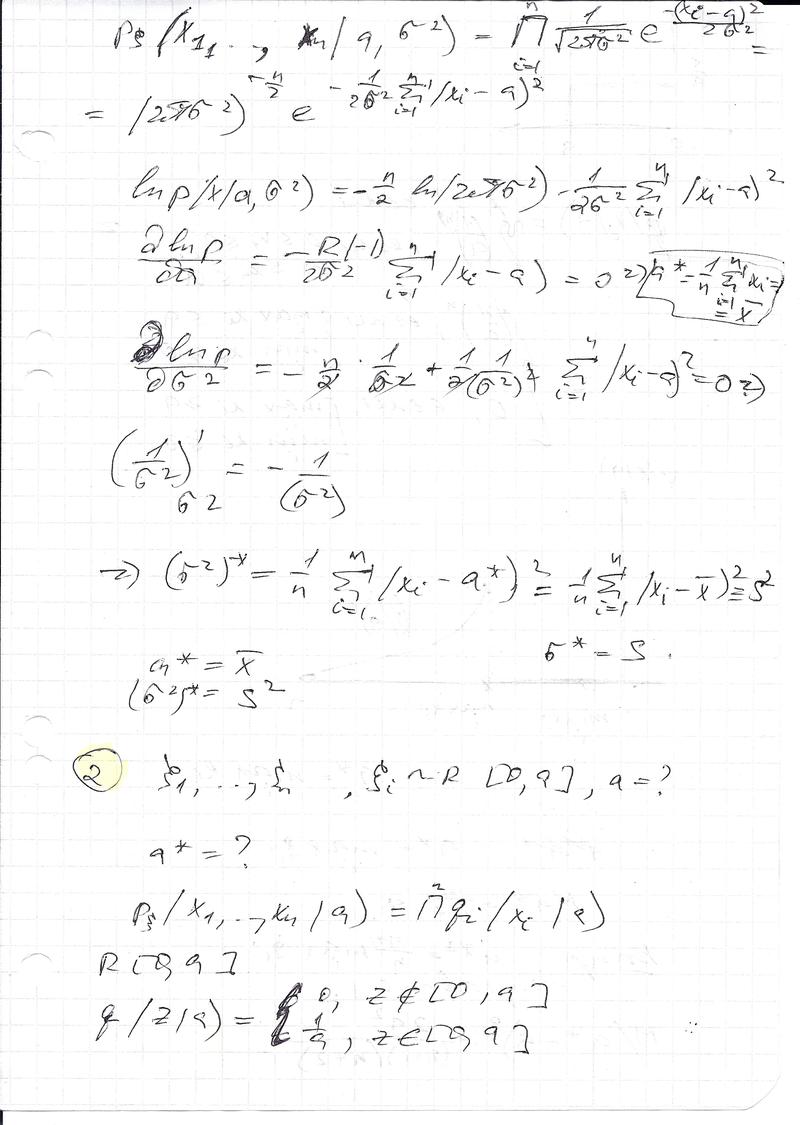 Pξ(x₁, .., xₙ / a, σ²) = ∏ᵢ₌₁ⁿ 1/√(2πσ²) e^(-(xᵢ-a)²/2σ²) =
= (2πσ²)^(-n/2) e^(-1/2σ² ∑ᵢ₌₁ⁿ (xᵢ-a)²)
ln p(x/a, σ²) = -n/2 ln(2πσ²) - 1/2σ² ∑ᵢ₌₁ⁿ (xᵢ-a)²
∂ ln p/∂a = -2(-1)/2σ² ∑ᵢ₌₁ⁿ (xᵢ-a) = 0 ⇒ a* = 1/n ∑ᵢ₌₁ⁿ xᵢ = = x̄
∂ ln p/∂σ² = -n/2 · 1/σ² + 1/2 1/(σ²)² ∑ᵢ₌₁ⁿ (xᵢ-a)² = 0 ⇒
(1/σ²)'σ² = -1/(σ²)
⇒ (σ²)* = 1/n ∑ᵢ₌₁ⁿ (xᵢ-a*)² = 1/n ∑ᵢ₌₁ⁿ (xᵢ-x̄)² ≡ S²
σ* = S.
a* = x̄
(σ²)* = S²
2 ξ₁, .., ξₙ, ξᵢ ~ R [0, a], a = ?
a* = ?
Pξ(x₁, .., xₙ / a) = ∏ⁿ qᵢ(xᵢ / a)
R [0, a]
q(z/a) = { 0, z ∉ [0, a]
1/a, z ∈ [0, a]